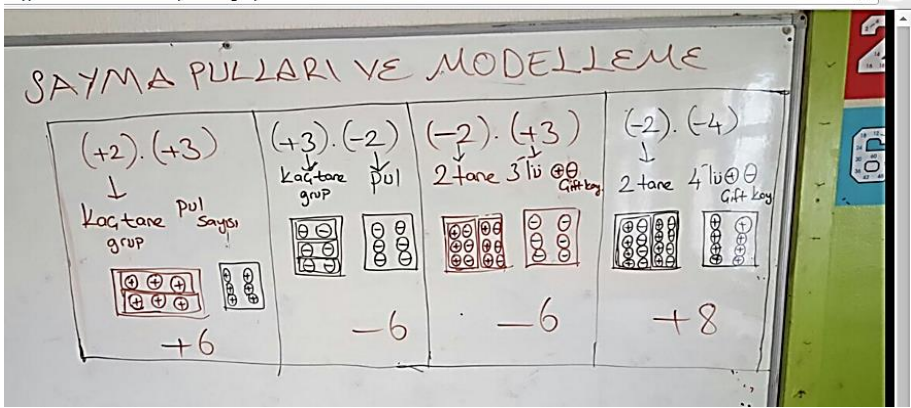 SAYMA PULLARI VE MODELLEME
(+2).(+3)
Kaç tane grup
Pul sayısı
+6
(+3).(-2)
Kaç tane grup
Pul
-6
(-2).(+3)
2 tane 3'lü ⊕⊖
Çift koy
-6
(-2).(-4)
2 tane 4'lü ⊕⊖
Çift koy
+8